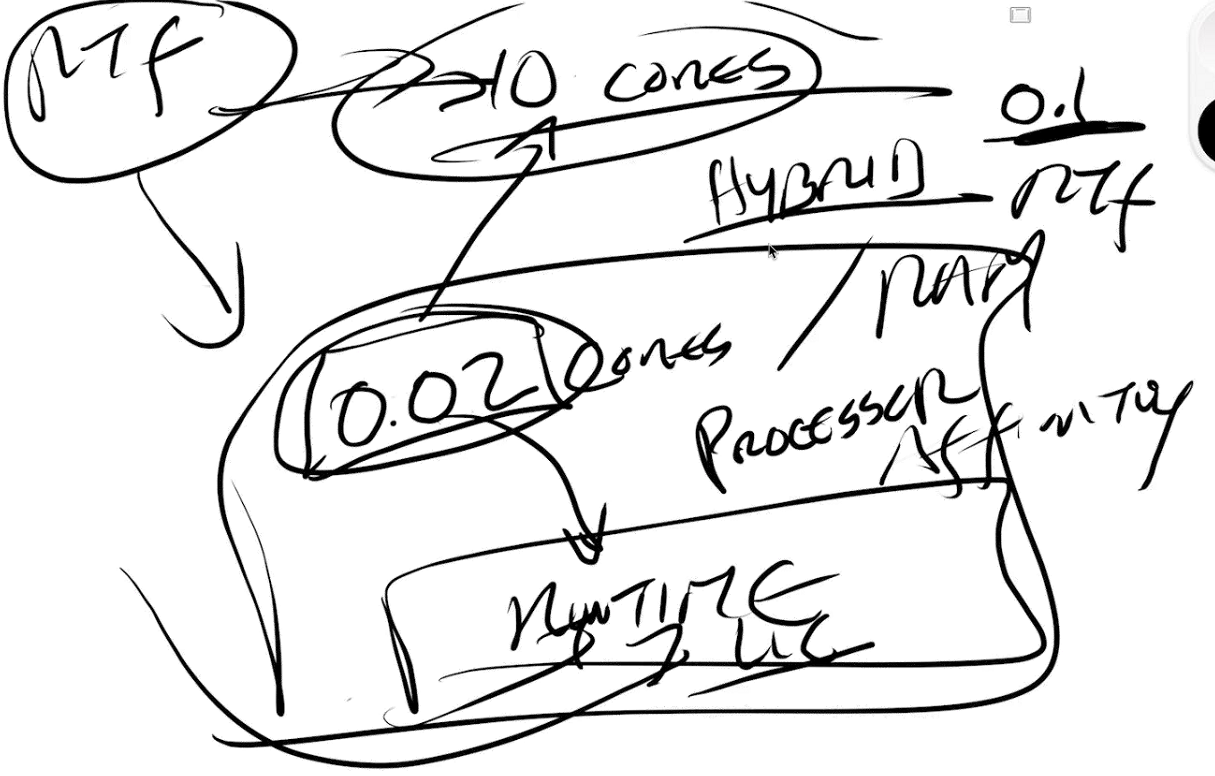 RTF
>10 CORES
0.1
HYBRID
RTF
/ RAM
0.02 CORES
PROCESSER
AFFINITY
RUNTIME